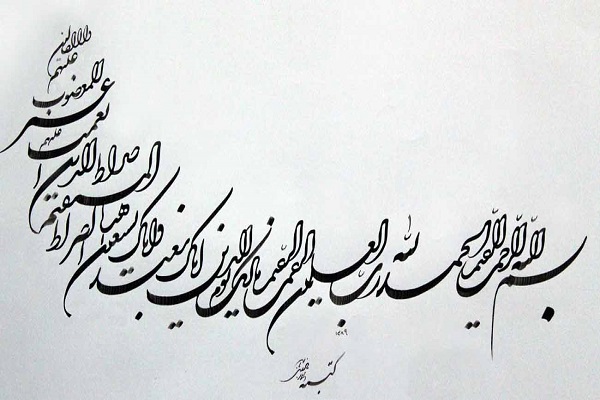 بسم الله الرحمن الرحیم الحمد لله رب العلمین الرحمن الرحیم مالک یوم الدین ایاک نعبد و ایاک نستعین اهدنا الصراط المستقیم صراط الذین انعمت علیهم غیر المغضوب علیهم ولا الضالین
کتبه